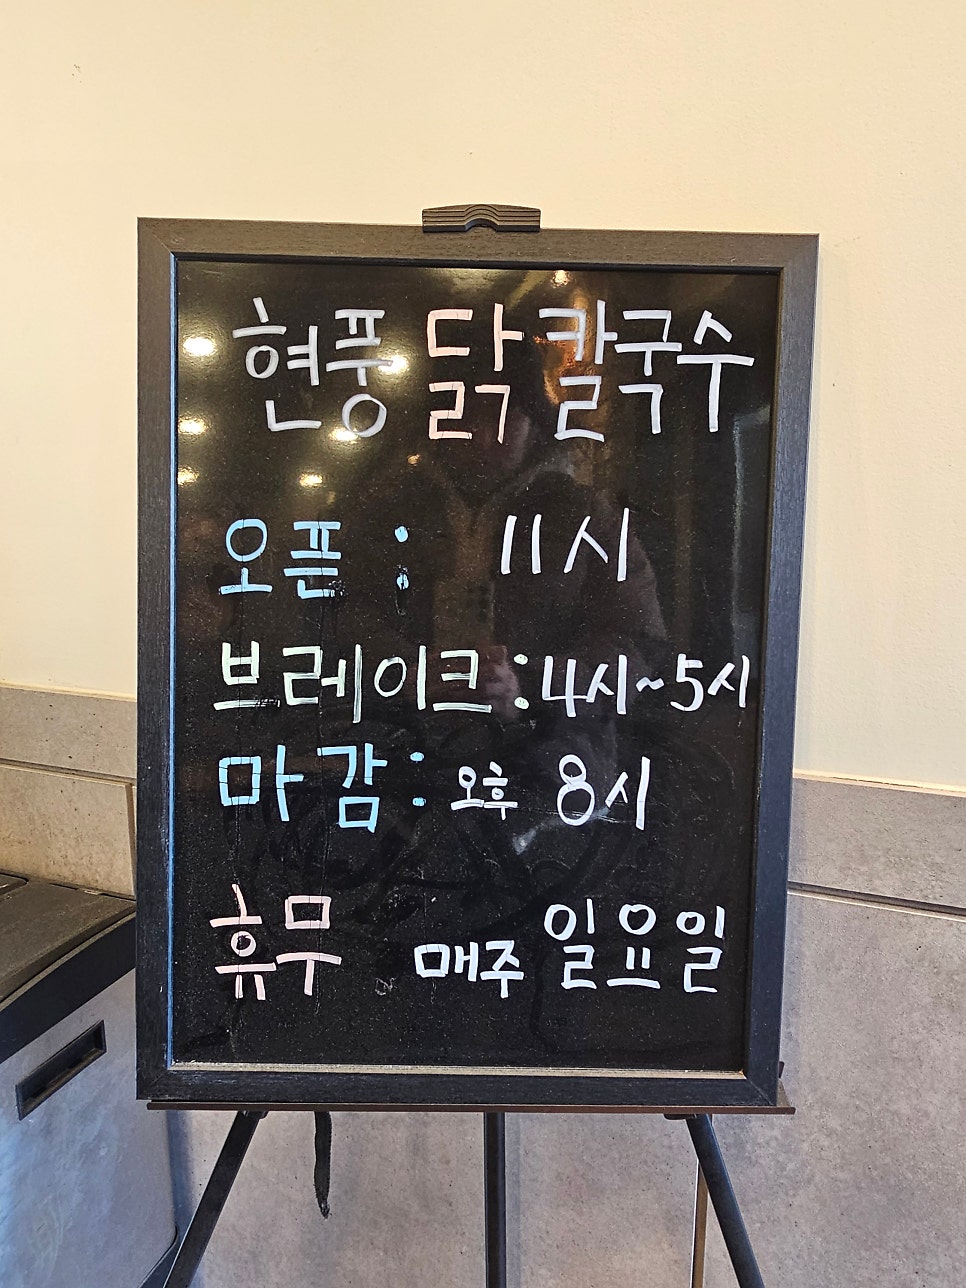 현풍 닭칼국수
오픈 : 11시
브레이크 : 4시~5시
마감 : 오후 8시
휴무 매주 일요일